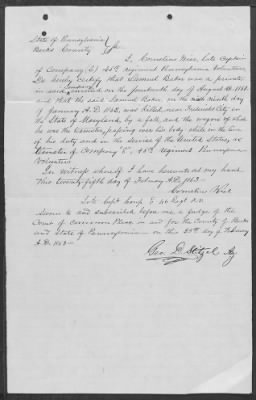 State of Pennsylvania
Berks County SS
I, Cornelius Wise, late Captain
of Company (E) 45th regiment Pennsylvania Volunteers,
Do hereby certify that Samuel Baker was a private
in said company on the fourteenth day of August 1861
and that the said Samuel Baker, on the ninth day
of January A.D. 1863, was killed near Frederick City in
the State of Maryland, by a fall, and the wagon of which
he was the teamster, passing over his body while in the line
of his duty and in the service of the United States, as
teamster of Company "E", 45th regiment Pennsylvania
Volunteers
In witness whereof I have hereunto set my hand
this twenty fifth day of February A.D. 1863
Cornelius Wise
Late Capt Comp E Regt P.V.
Sworn to and subscribed before me a judge of the
Court of Common Pleas in and for the County of Berks
and State of Pennsylvania on this 25th day of February
A.D. 1863
Geo. D. Stitzel